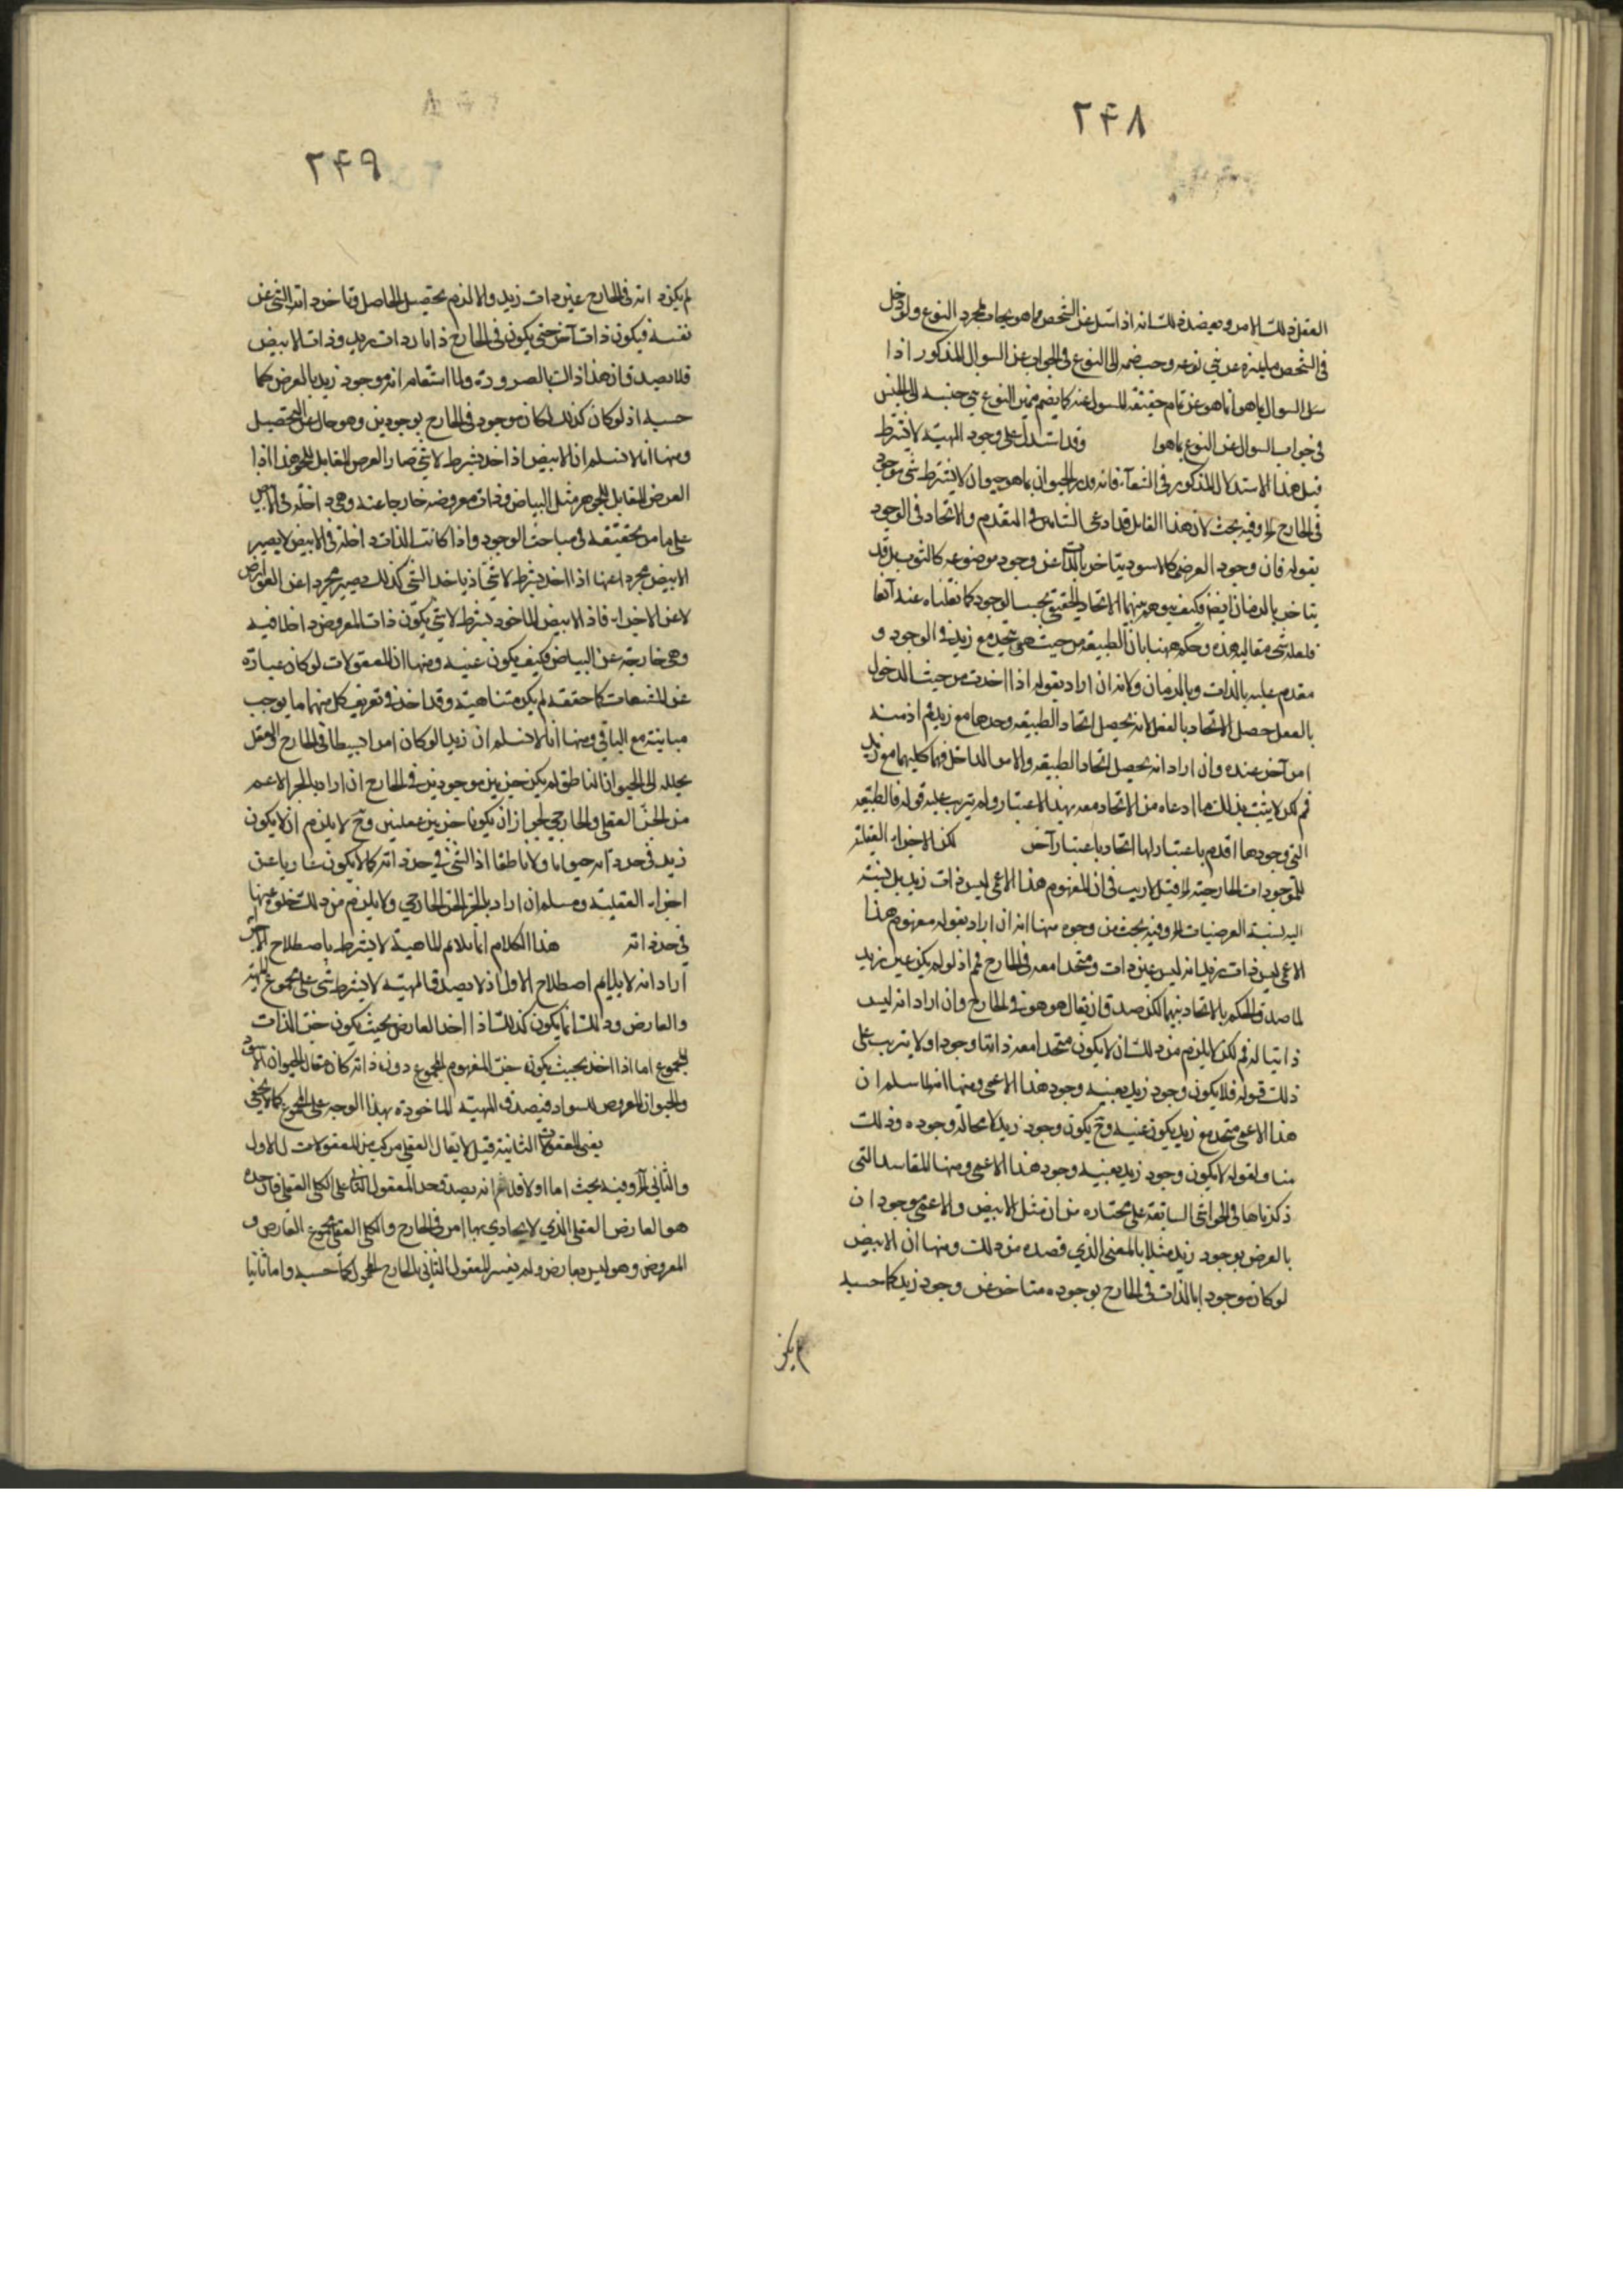 ٢۴٨
العقل ذلك الامر ويعضد ذلك انه اذا سئل عن الشخص بما هو يجاب بمجرد النوع ولو دخل
في الشخص ما يميزه عن بني نوعه وجب ضمه الى النوع في الجواب عن السوال المذكور اذا
سئل السوال بما هو انما هو عن تمام حقيقة المسول عنه كما يضم مميز النوع بني جنسه الى الجنس
في جواب السوال عن النوع بما هو وقد استدل على وجود المهية لا بشرط
قيل هذا الاستدلال المذكور في الشفآء فانه قرر الحيوان بما هو حيوان لا بشرط شئ موجود
في الخارج وفيه بحث لان هذا القايل قد ادعى التنافي في التقدم والاتحاد في الوجود
بقوله فان وجود العرضى كالاسود يتاخر بالذات عن وجود موضوعه كالثوب بل قد
يتاخر بالزمان ايضا فكيف يتوهم بينهما الاتحاد الحقيقي بحسب الوجود كما نقلناه عنه آنفا
فلعله نسى مقاليه هذه وحكم ههنا بان الطبيعة من حيث هى يتحد مع زيد في الوجود و
مقدم عليه بالذات وبالزمان ولانه ان اراد بقوله اذا اخذت من حيث الدخول
بالفعل حصل الاتحاد بالفعل انه يحصل اتحاد الطبيعه وحدها مع زيد فم اذ منه
امر آخر عنده وان اراد انه يحصل اتحاد الطبيعه والامر الداخل فيها كليهما مع زيد
فم لكن لا يثبت بذلك ما ادعاه من الاتحاد معه بهذا الاعتبار ولم يترتب عليه قوله فالطبيعه
التي وجودها اقدم باعتبار لها اتحاد باعتبار آخر لكن الاجزاء العقلية
للموجودات الخارجية قيل لا ريب في ان المفهوم هذا الاعمى ليس ذات زيد بل نسبته
اليه نسبة العرضيات وفيه بحث من وجوه منها انه ان اراد بقوله مفهوم هذا
الاعمى ليس ذات زيد انه ليس عين ذات ومتحدا معه في الخارج فم اذ لو لم يكن عين زيد
لما صدق الحكم بالاتحاد بينهما لكن صدق ان يقال هو هو في الخارج وان اراد انه ليس
ذاتيا له فم لكن لا يلزم من ذلك ان لا يكون متحدا معه ذاتا ووجودا ولا يترتب على
ذلك قوله فلا يكون وجود زيد بعينه وجود هذا الاعمى ومنها انه لما سلم ان
هذا الاعمى متحد مع زيد يكون عينه وح يكون وجود زيد لا محالة وجوده وذلك
مناف لقوله لا يكون وجود زيد بعينه وجود هذا الاعمى ومنها المفاسد التي
ذكرناها في الحواشي السابقة على مختاره من ان مثل الابيض والاعمى موجود ان
بالعرض بوجود زيد مثلا بالمعنى الذي قصده من ذلك ومنها ان الابيض
لو كان موجودا بالذات في الخارج بوجوده متاخر عن وجود زيد كما حسبه
لم يكن
٢۴٩
لم يكن ذاته في الخارج عين ذات زيد والا لزم تحصيل الحاصل وتاخر ذات الشئ عن
نفسه فيكون ذات آخر حتى يكون في الخارج ذاتان ذات زيد وذات الابيض
فلا يصدق ان هذا ذاك بالضرورة ولما استقام انه موجود زيد بالعرض كما
حسبه اذ لو كان كذلك لكان موجود في الخارج بوجودين وهو حال عن التحصيل
ومنها انا لا نسلم ان الابيض اذا اخذ بشرط لا شئ صار العرض المقابل للجوهر هذا اذا
العرض المقابل للجوهر مثل البياض وذات معروضه خارجا عنه وهى داخلة في الابيض
على ما مر تحقيقه في مباحث الوجود واذا كانت الذات داخلة في الابيض لا يصير
الابيض مجردا عنها اذا اخذ بشرط لا شئ اذ ياخذ الشئ كذلك يصير مجردا عن العوارض
لا عن الاجزاء فاذن الابيض الماخوذ بشرط لا شئ يكون ذات المعروض داخلا فيه
وهي خارجة عن البياض فكيف يكون عينه ومنها ان المقولات لو كان عبارة
عن المشتقات كما حققه لم يكن متناهية وقد اخذ في تعريف كل منهما ما يوجب
مباينته مع الباقي ومنها انا لا نسلم ان زيدا لو كان امرا بسيطا في الخارج والعقل
يحلله الى الحيوان الناطق لم يكن جزءين موجودين في الخارج ان اراد بالجزء الاعم
من الجزء العقلي والخارجي لجواز ان يكونا جزءين عقليين وح لا يلزم ان لا يكون
زيد في حد ذاته حيوانا ولا ناطقا اذ الشئ في حد ذاته كما لا يكون عاريا عن
اجزاء العقلية ومسلم ان اراد بالجزء الجزء الخارجي ولا يلزم من ذلك خلوه عنها
في حد ذاته هذا الكلام انما يلائم الماهية لا بشرط باصطلاح الآخر
اراد انه لا يلايم اصطلاح الاول اذ لا يصدق المهية لا بشرط شئ على مجموع المهية
والعارض وذلك انما يكون كذلك اذا اخذ العارض بحيث يكون جزء الذات
المجموع اما اذا اخذ بحيث يكون جزء المفهوم المجموع دون ذاته كان يقال الحيوان الاسود
والحيوان المعروض للسواد فيصدق المهية الماخوذة بهذا الوجه على المجموع كما لا يخفى
يعني المعقولات الثانية قيل لا يقال العقلي مركب من المعقولات الاول
والثاني وفيه بحث اما اولا فلانه يصدق حد المعقول الثاني على الكلى العقلي فان حده
هو العارض العقلي الذي لا يحاذي بها امر في الخارج والكلي العقلي مجموع العارض و
المعروض وهو ليس بعارض ولم يفسر المعقول الثاني بالخارج المحمول كما حسبه واما ثانيا